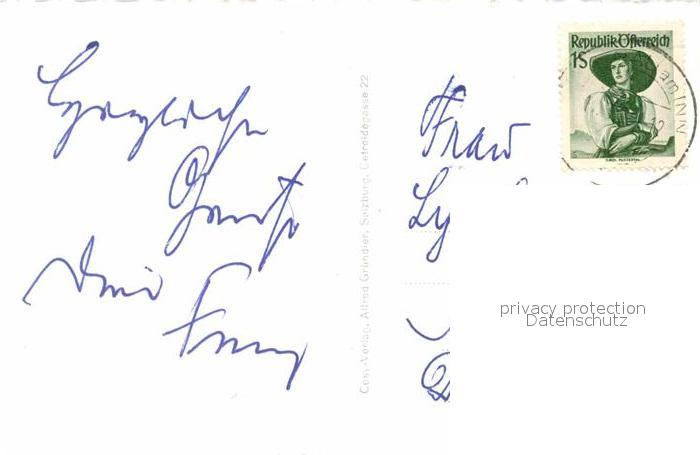 Herzliche
Grüße
Dein
Cosy-Verlag, Alfred Gründler, Salzburg, Getreidegasse 22
Frau
Ly
Republik Österreich
1S
am INN
privacy protection
Datenschutz